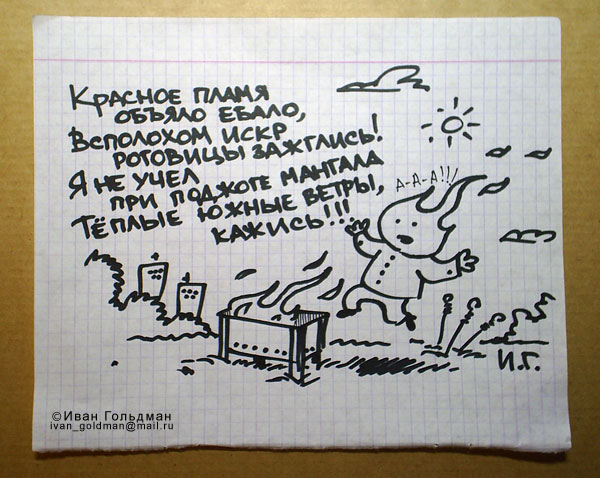 Красное пламя
объяло ебало,
Всполохом искр
роговицы зажглись!
Я не учел
при поджоге мангала
Тёплые южные ветры,
кажись!!!
А-А-А!!!
И.Г.
©Иван Гольдман
ivan_goldman@mail.ru